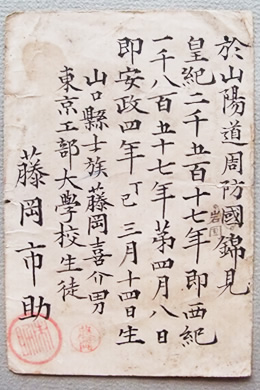 於山陽道周防國錦見
岩国
皇紀二千五百十七年即西紀
一千八百五十七年第四月八日
即安政四年丁巳三月十四日生
山口縣士族藤岡喜介男
東京工部大學校生徒
藤岡市助